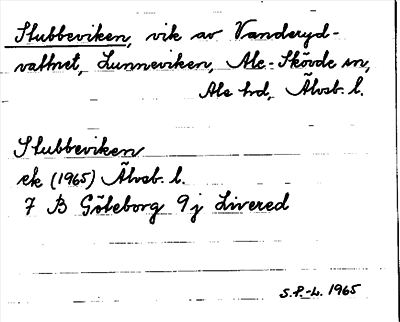 Stubbeviken, vik av Vanderyd-
vattnet, Lunneviken, Ale-Skövde sn,
Ale hd, Älvsb. l.
Stubbeviken
ek (1965) Älvsb. l.
7 B Göteborg 9 j Livered
S.P.-L. 1965